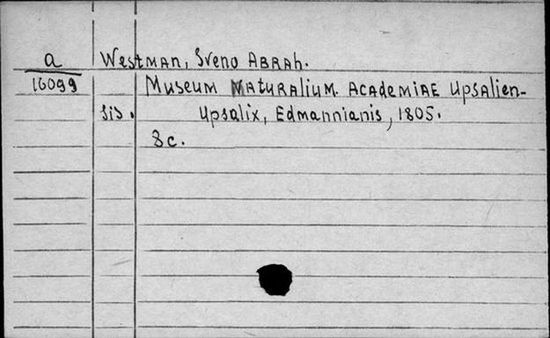 a Westman, Sveno Abrah.
16099 Museum Naturalium Academiae Upsalien-
sis. Upsalix, Edmannianis, 1805.
8c.